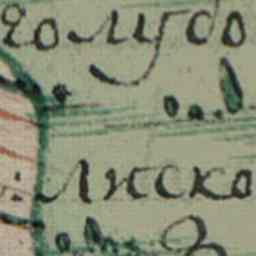 голубо
лиско